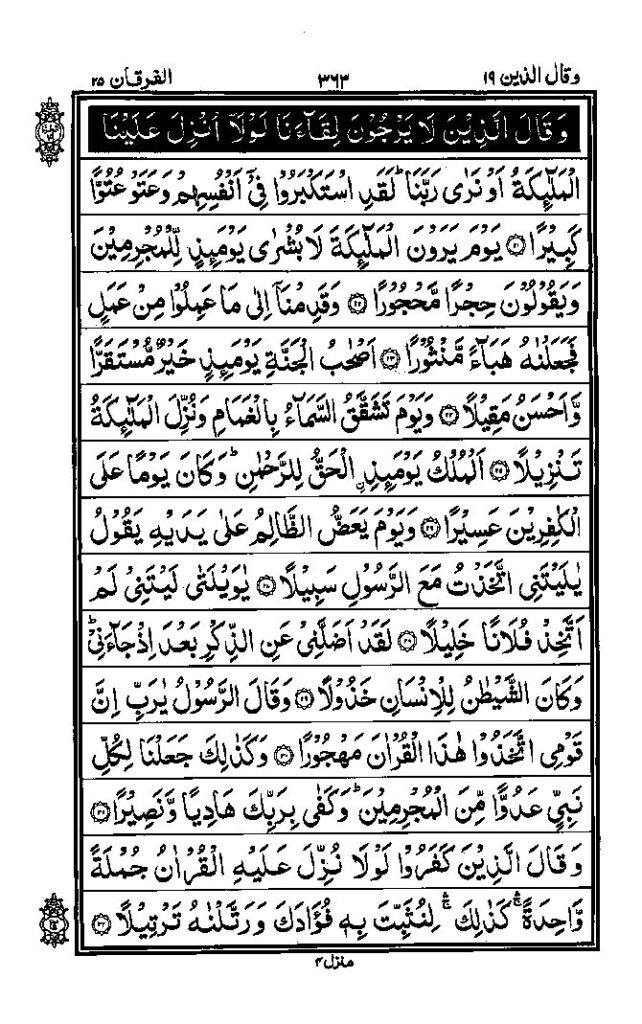 وقال الذین ۱۹ ۳۶۳ الفرقان ۲۵
وَقَالَ الَّذِیْنَ لَا یَرْجُوْنَ لِقَآءَنَا لَوْلَاۤ اُنْزِلَ عَلَیْنَا
الْمَلٰٓئِكَةُ اَوْ نَرٰی رَبَّنَا ؕ لَقَدِ اسْتَكْبَرُوْا فِیْۤ اَنْفُسِهِمْ وَعَتَوْ عُتُوًّا
كَبِیْرًا ۝۲۱ یَوْمَ یَرَوْنَ الْمَلٰٓئِكَةَ لَا بُشْرٰی یَوْمَئِذٍ لِّلْمُجْرِمِیْنَ
وَیَقُوْلُوْنَ حِجْرًا مَّحْجُوْرًا ۝۲۲ وَقَدِمْنَاۤ اِلٰی مَا عَمِلُوْا مِنْ عَمَلٍ
فَجَعَلْنٰهُ هَبَآءً مَّنْثُوْرًا ۝۲۳ اَصْحٰبُ الْجَنَّةِ یَوْمَئِذٍ خَیْرٌ مُّسْتَقَرًّا
وَّاَحْسَنُ مَقِیْلًا ۝۲۴ وَیَوْمَ تَشَقَّقُ السَّمَآءُ بِالْغَمَامِ وَنُزِّلَ الْمَلٰٓئِكَةُ
تَنْزِیْلًا ۝۲۵ اَلْمُلْكُ یَوْمَئِذِ ِۨالْحَقُّ لِلرَّحْمٰنِ ؕ وَكَانَ یَوْمًا عَلَی
الْكٰفِرِیْنَ عَسِیْرًا ۝۲۶ وَیَوْمَ یَعَضُّ الظَّالِمُ عَلٰی یَدَیْهِ یَقُوْلُ
یٰلَیْتَنِی اتَّخَذْتُ مَعَ الرَّسُوْلِ سَبِیْلًا ۝۲۷ یٰوَیْلَتٰی لَیْتَنِیْ لَمْ
اَتَّخِذْ فُلَانًا خَلِیْلًا ۝۲۸ لَقَدْ اَضَلَّنِیْ عَنِ الذِّكْرِ بَعْدَ اِذْ جَآءَنِیْ ؕ
وَكَانَ الشَّیْطٰنُ لِلْاِنْسَانِ خَذُوْلًا ۝۲۹ وَقَالَ الرَّسُوْلُ یٰرَبِّ اِنَّ
قَوْمِی اتَّخَذُوْا هٰذَا الْقُرْاٰنَ مَهْجُوْرًا ۝۳۰ وَكَذٰلِكَ جَعَلْنَا لِكُلِّ
نَبِیٍّ عَدُوًّا مِّنَ الْمُجْرِمِیْنَ ؕ وَكَفٰی بِرَبِّكَ هَادِیًا وَّنَصِیْرًا ۝۳۱
وَقَالَ الَّذِیْنَ كَفَرُوْا لَوْلَا نُزِّلَ عَلَیْهِ الْقُرْاٰنُ جُمْلَةً
وَّاحِدَةً ۛۚ كَذٰلِكَ ۛۚ لِنُثَبِّتَ بِهٖ فُؤَادَكَ وَرَتَّلْنٰهُ تَرْتِیْلًا ۝۳۲
منزل ۴